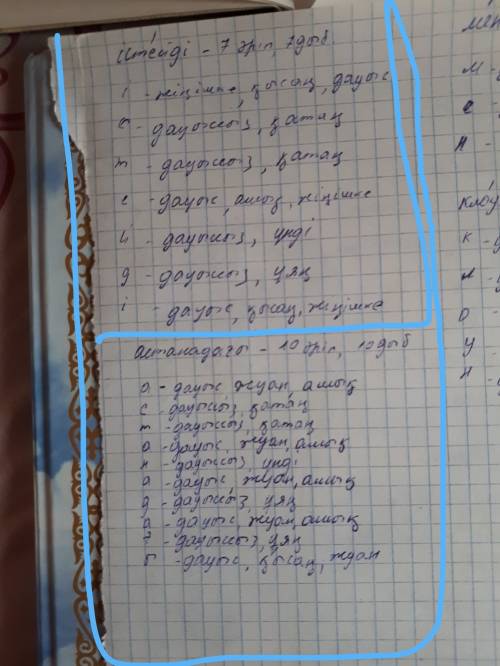 істейді - 7 әріп, 7 дыб.
і - жіңішке, қысаң, дауыс
с - дауыссыз, қатаң
т - дауыссыз, қатаң
е - дауыс, ашық, жіңішке
й - дауыссыз, үнді
д - дауыссыз, ұяң
і - дауыс, қысаң, жіңішке
астанадағы - 10 әріп, 10 дыб
а - дауыс жуан, ашық
с - дауыссыз, қатаң
т - дауыссыз, қатаң
а - дауыс, жуан, ашық
н - дауыссыз, үнді
а - дауыс, жуан, ашық
д - дауыссыз, ұяң
а - дауыс, жуан, ашық
ғ - дауыссыз, ұяң
ы - дауыс, қысаң, жуан
м -
е
н -
к -
л -
о -
у
н